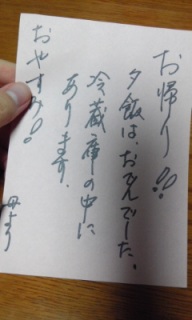 お帰り!!
夕飯は、おでんでした。
冷蔵庫の中に
あります。
おやすみ!
母より